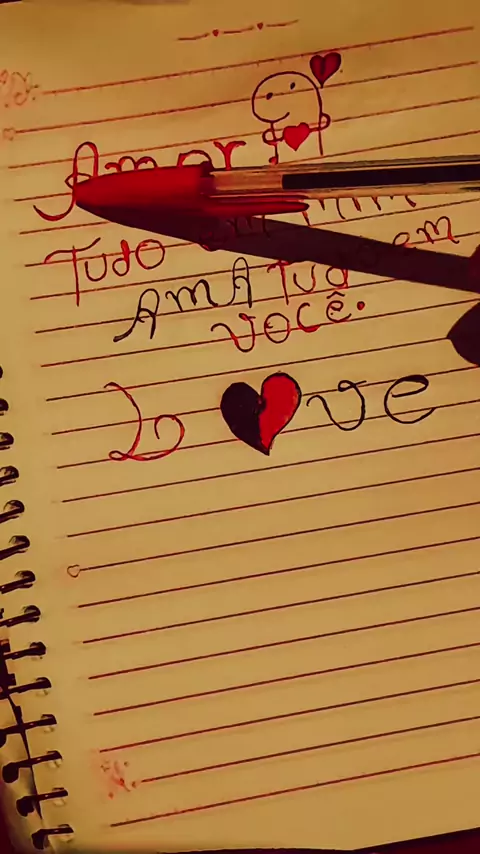 Amor
Tudo em mim
AmA Tudo em
você.
Love